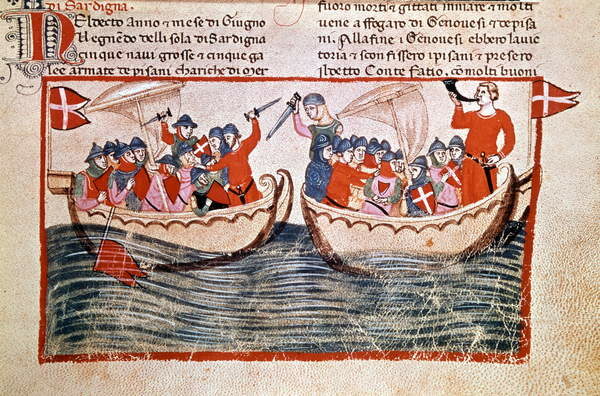 di Sardigna.
NEldecto Anno & mese di Giugno
vegnendo dellisola di Sardigna
cinque navi grosse & cinque ga
lee armate de pisani chariche di mer
fuoro morti & gittati in mare & molti
vene affogaro di Genovesi & de pisa
ni. Alla fine i Genovesi ebbero la vic
toria & sconfissero i pisani & presero
il detto Conte Fatio, cō molti buoni